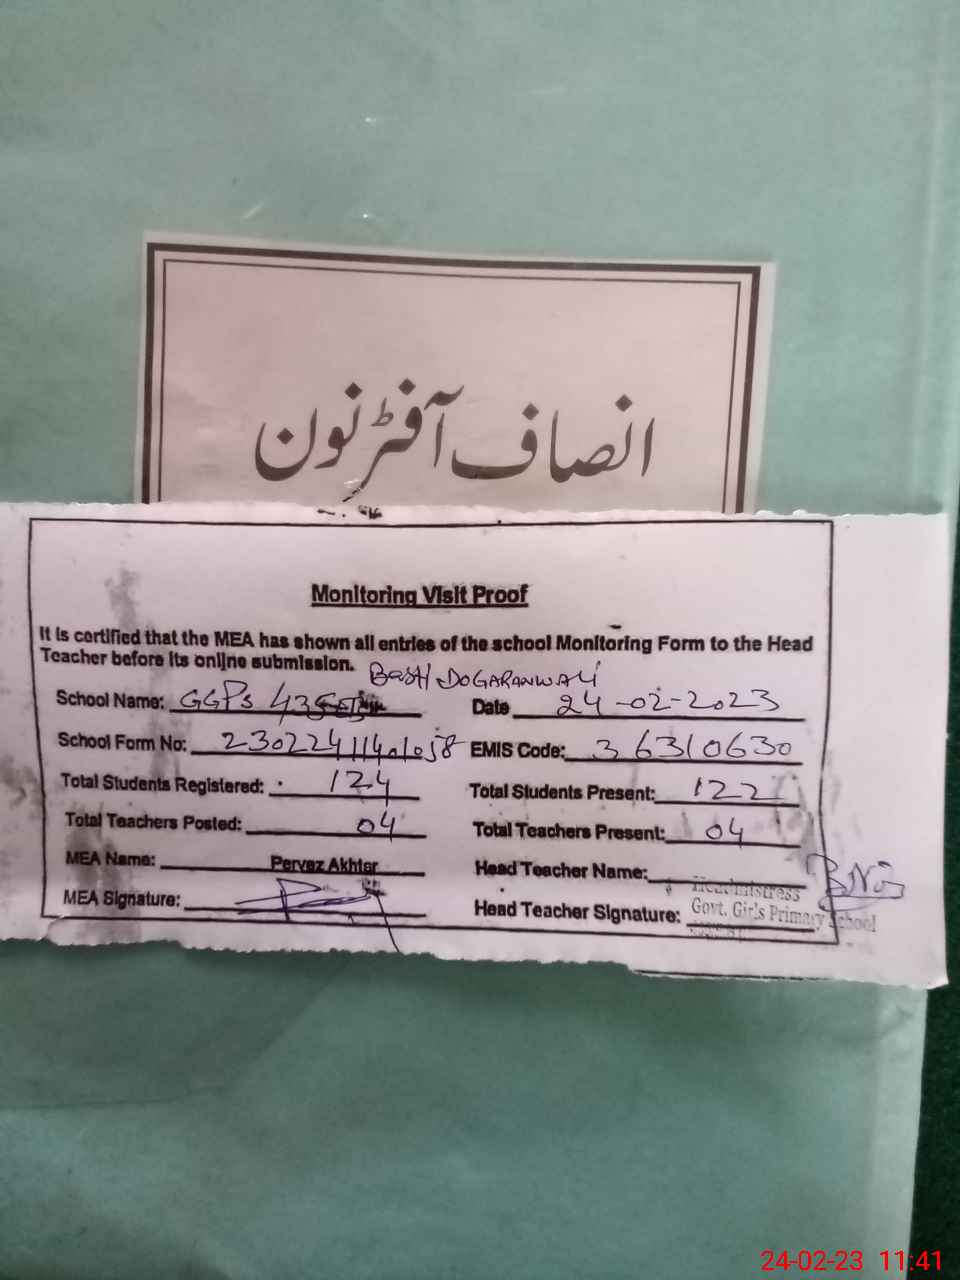 انصاف آفٹر نون
Monitoring Visit Proof
It is certified that the MEA has shown all entries of the school Monitoring Form to the Head
Teacher before its online submission.
Basti DOGARANWALI
School Name: GGPS Date 24-02-2023
School Form No: EMIS Code: 36310630
Total Students Registered: 124 Total Students Present: 122
Total Teachers Posted: 04 Total Teachers Present: 04
MEA Name: Pervaz Akhtar Head Teacher Name:
MEA Signature: Head Teacher Signature:
Headmistress
Govt. Girls Primary School
24-02-23 11:41